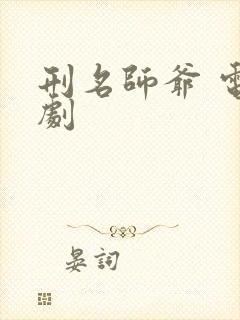 刑名師爺 電
劇
晏詞